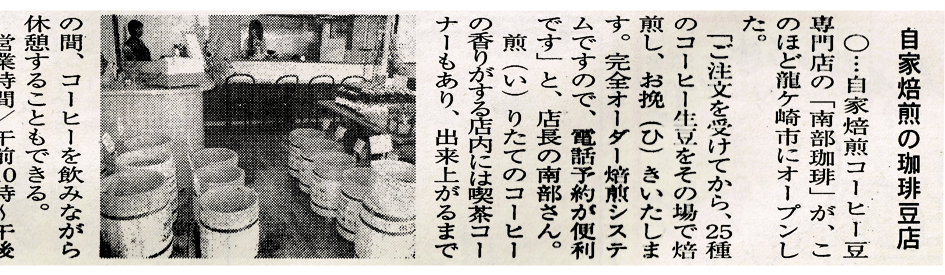 自家焙煎の珈琲豆店
〇…自家焙煎コーヒー豆
専門店の「南部珈琲」が、こ
のほど龍ケ崎市にオープンし
た。
「ご注文を受けてから、25種
のコーヒー生豆をその場で焙
煎し、お挽(ひ)きいたしま
す。完全オーダー焙煎システ
ムですので、電話予約が便利
です」と、店長の南部さん。
煎(い)りたてのコーヒー
の香りがする店内には喫茶コー
ナーもあり、出来上がるまで
の間、コーヒーを飲みながら
休憩することもできる。
営業時間/午前10時～午後